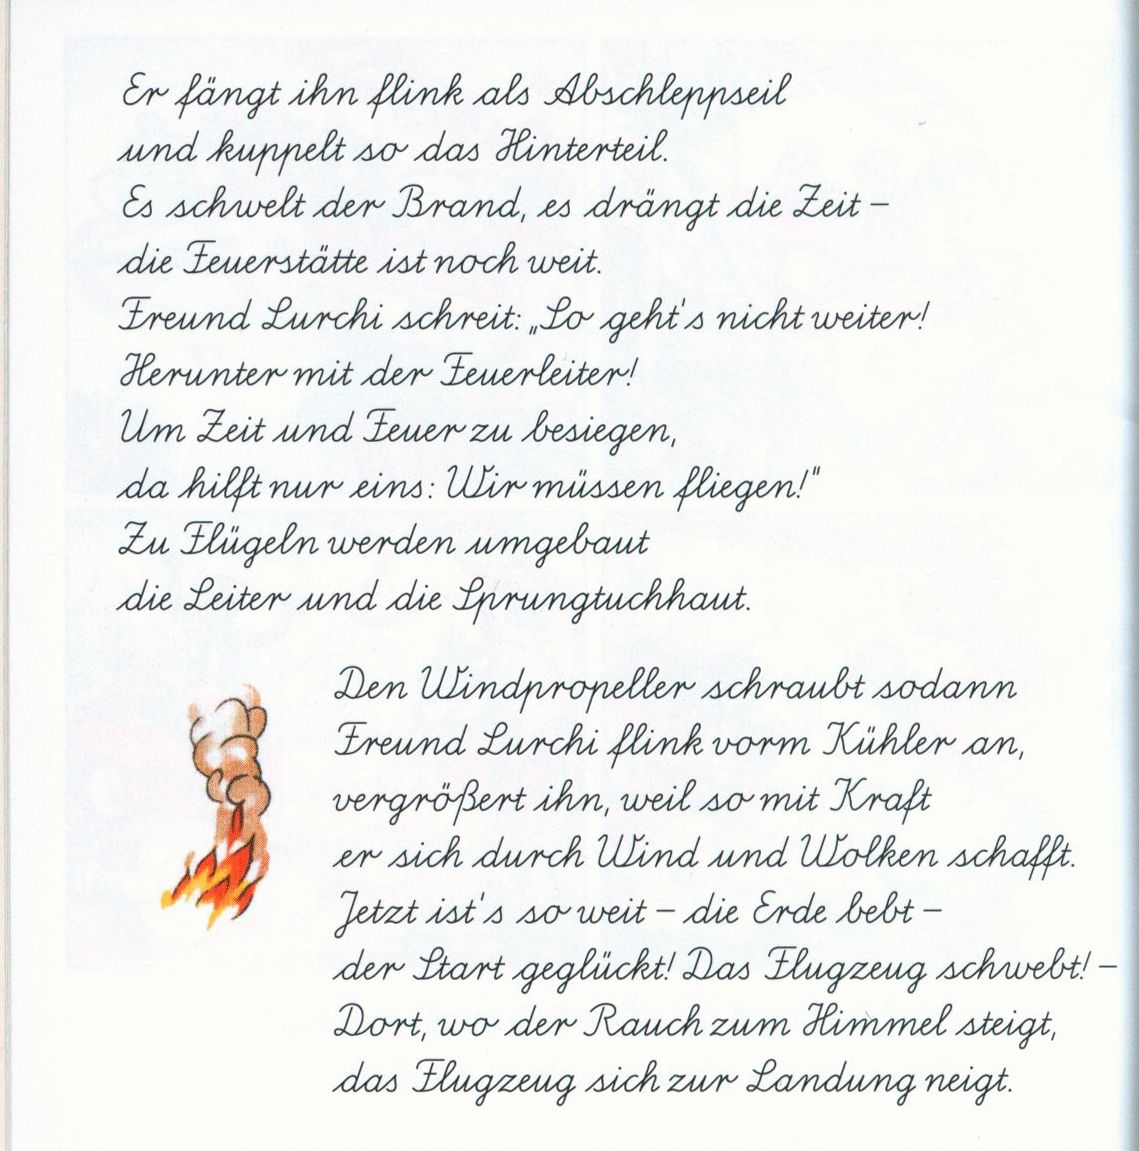 Er fängt ihn flink als Abschleppseil
und kuppelt so das Hinterteil.
Es schwelt der Brand, es drängt die Zeit –
die Feuerstätte ist noch weit.
Freund Lurchi schreit: „So geht's nicht weiter!
Herunter mit der Feuerleiter!
Um Zeit und Feuer zu besiegen,
da hilft nur eins: Wir müssen fliegen!"
Zu Flügeln werden umgebaut
die Leiter und die Sprungtuchhaut.
Den Windpropeller schraubt sodann
Freund Lurchi flink vorm Kühler an,
vergrößert ihn, weil so mit Kraft
er sich durch Wind und Wolken schafft.
Jetzt ist's so weit – die Erde bebt –
der Start geglückt! Das Flugzeug schwebt! –
Dort, wo der Rauch zum Himmel steigt,
das Flugzeug sich zur Landung neigt.